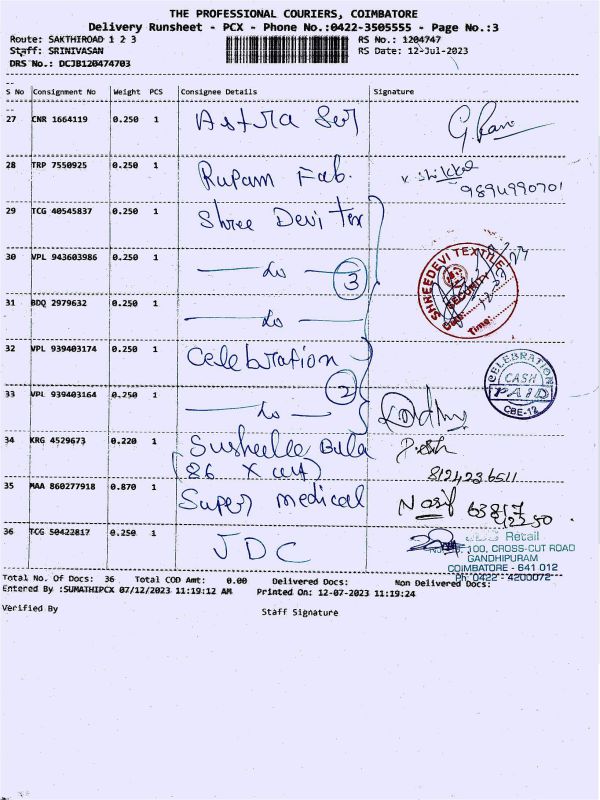 THE PROFESSIONAL COURIERS, COIMBATORE
Delivery Runsheet - PCX - Phone No.:0422-3505555 - Page No.:3
Route: SAKTHIROAD 1 2 3
RS No.: 1204747
Staff: SRINIVASAN
RS Date: 12-Jul-2023
DRS No.: DCJB120474703
S No Consignment No Weight PCS Consignee Details Signature
27 CNR 1664119 0.250 1 Astra Ser G.Ravi
28 TRP 7550925 0.250 1 Rupam Fab. 9894990701
29 TCG 40545837 0.250 1 Shree Devi Tex
30 VPL 943603986 0.250 1 Do 3
SHREEDEVI TEXTILE
SECURITY
Date:
Time:
31 BDQ 2979632 0.250 1 Do
32 VPL 939403174 0.250 1 Celebration
CELEBRATION
CASH
PAID
CBE-12
33 VPL 939403164 0.250 1 Do 2
34 KRG 4529673 0.220 1 Susheela Bala
(86 X cut) 8124236511
35 MAA 860277918 0.870 1 Super medical Nasif 63817
42250
36 TCG 50422817 0.250 1 JDC
Retail
100, CROSS-CUT ROAD
GANDHIPURAM
COIMBATORE - 641 012
Ph: 0422 - 4200072
Total No. Of Docs: 36 Total COD Amt: 0.00 Delivered Docs: Non Delivered Docs:
Entered By :SUMATHIPCX 07/12/2023 11:19:12 AM Printed On: 12-07-2023 11:19:24
Verified By Staff Signature